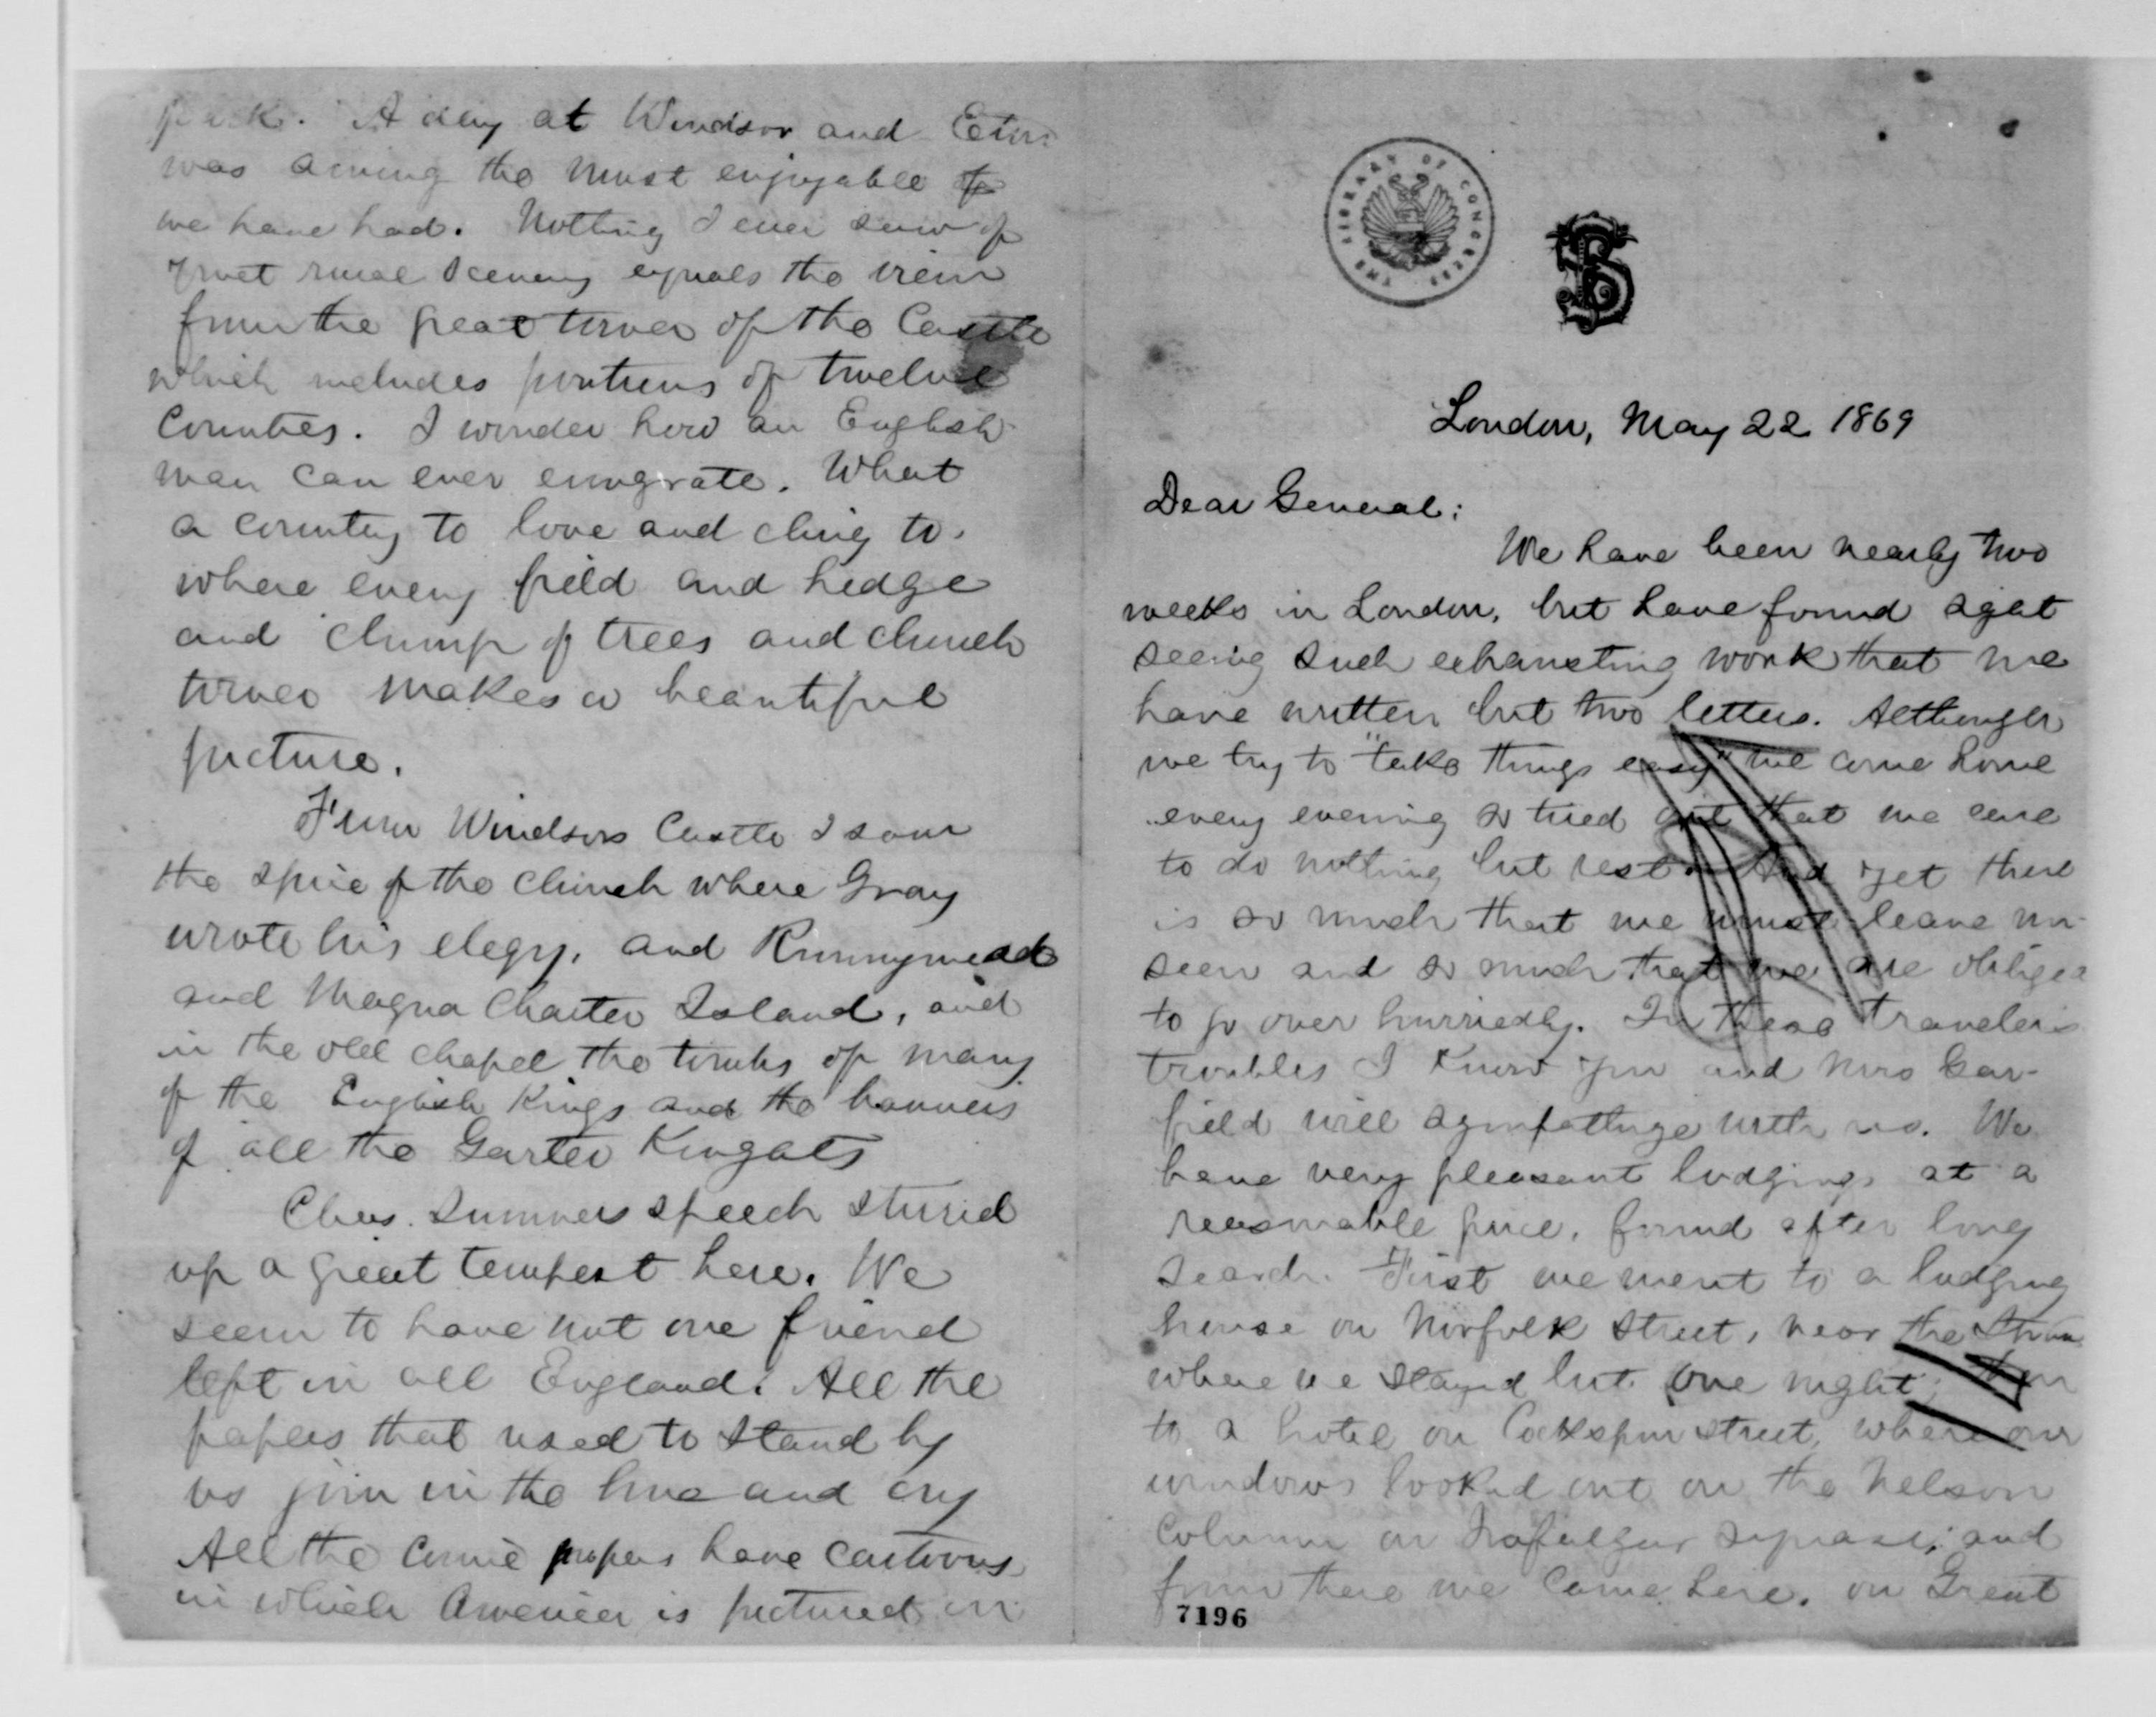 park. A day at Windsor and Eton
was among the most enjoyable
we have had. Nothing I ever saw of
quiet rural scenery equals the view
from the great tower of the Castle
which includes portions of twelve
Counties. I wonder how an English-
man can ever emigrate. What
a country to love and cling to,
where every field and hedge
and clump of trees and church
tower makes a beautiful
picture.
From Windsor Castle I saw
the spire of the church where Gray
wrote his elegy, and Runnymead
and Magna Charter Island, and
in the old chapel the tombs of many
of the English Kings and the banners
of all the Garter Kingats
Chas. Sumners speech stirred
up a great tempest here. We
seem to have not one friend
left in all England. All the
papers that used to stand by
us join in the hue and cry
All the comic papers have cartoons
in which America is pictured in
THE LIBRARY OF CONGRESS
London, May 22 1869
Dear General:
We have been nearly two
weeks in London, but have found sight
seeing such exhausting work that we
have written but two letters. Although
we try to "take things easy" we come home
every evening so tired out that we care
to do nothing but rest. And yet there
is so much that we must leave un-
seen and so much that we are obliged
to go over hurriedly. In these travelers
troubles I know you and Mrs Gar-
field will sympathize with us. We
have very pleasant lodgings at a
reasonable price, found after long
search. First we went to a lodging
house on Norfolk Street, near the Stran
where we stayed but one night; then
to a hotel on Cockspur street, where our
windows looked out on the Nelson
Column on Trafalgar Square; and
from there we came here, on Great
7196